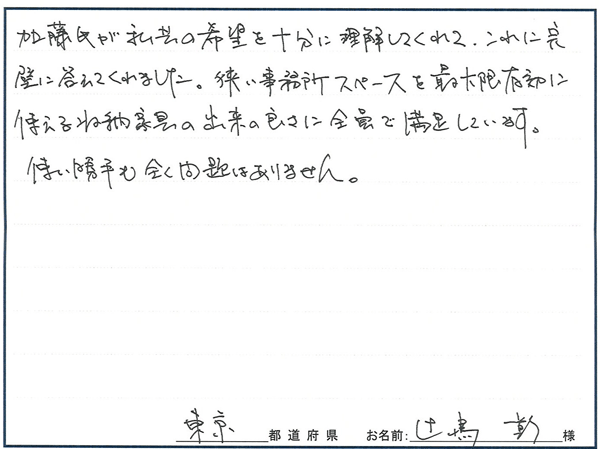 加藤氏が私共の希望を十分に理解してくれて、これに完
璧に答えてくれました。狭い事務所スペースを最大限有効に
使える収納家具の出来の良さに全員で満足しています。
使い勝手も全く問題はありません。
東京 都道府県 お名前: 辻 彰 様